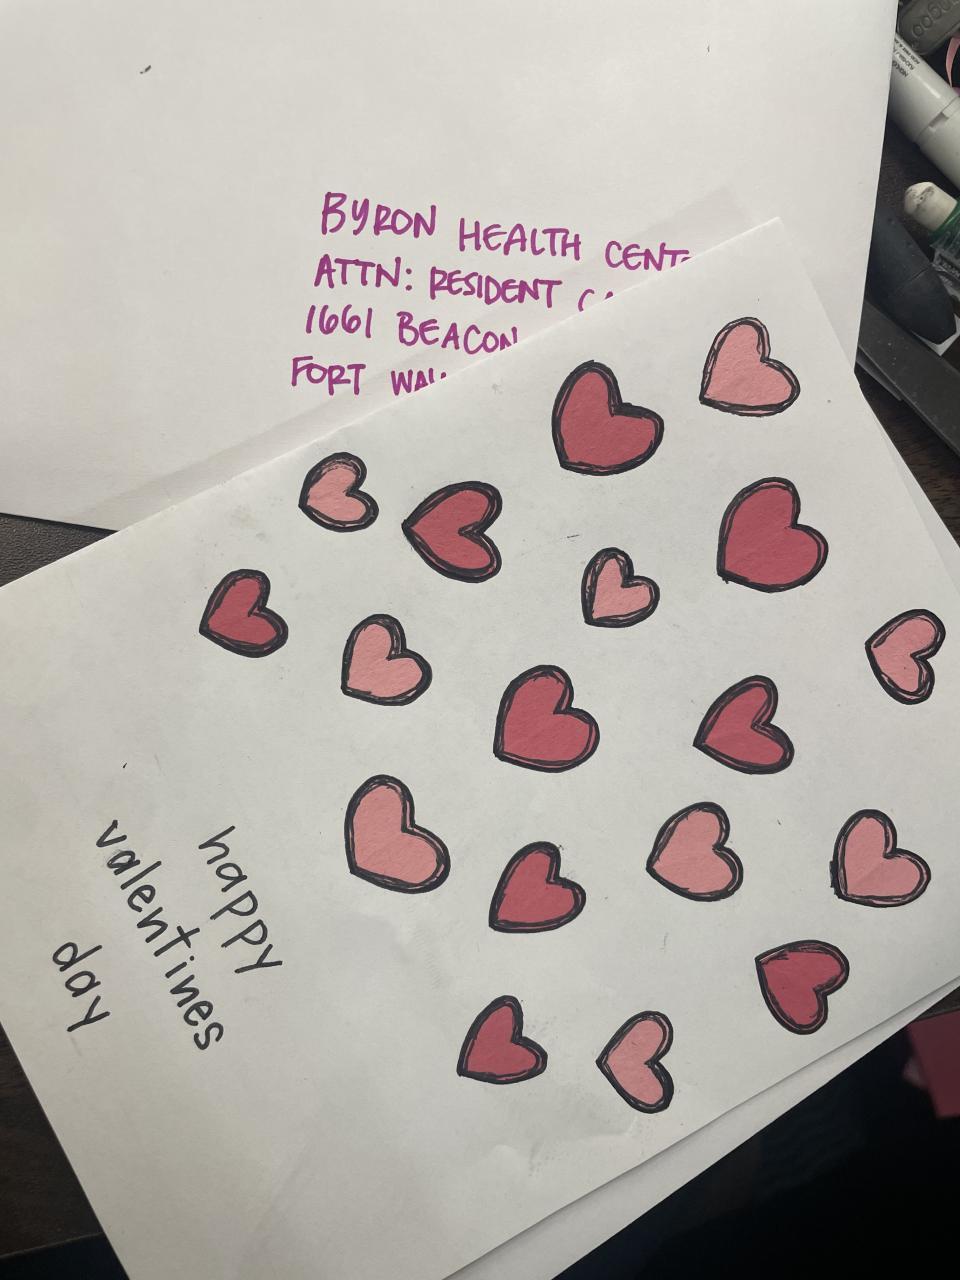 BYRON HEALTH
ATTN: RESIDENT
1661 BEACON
FORT
happy
valentines
day